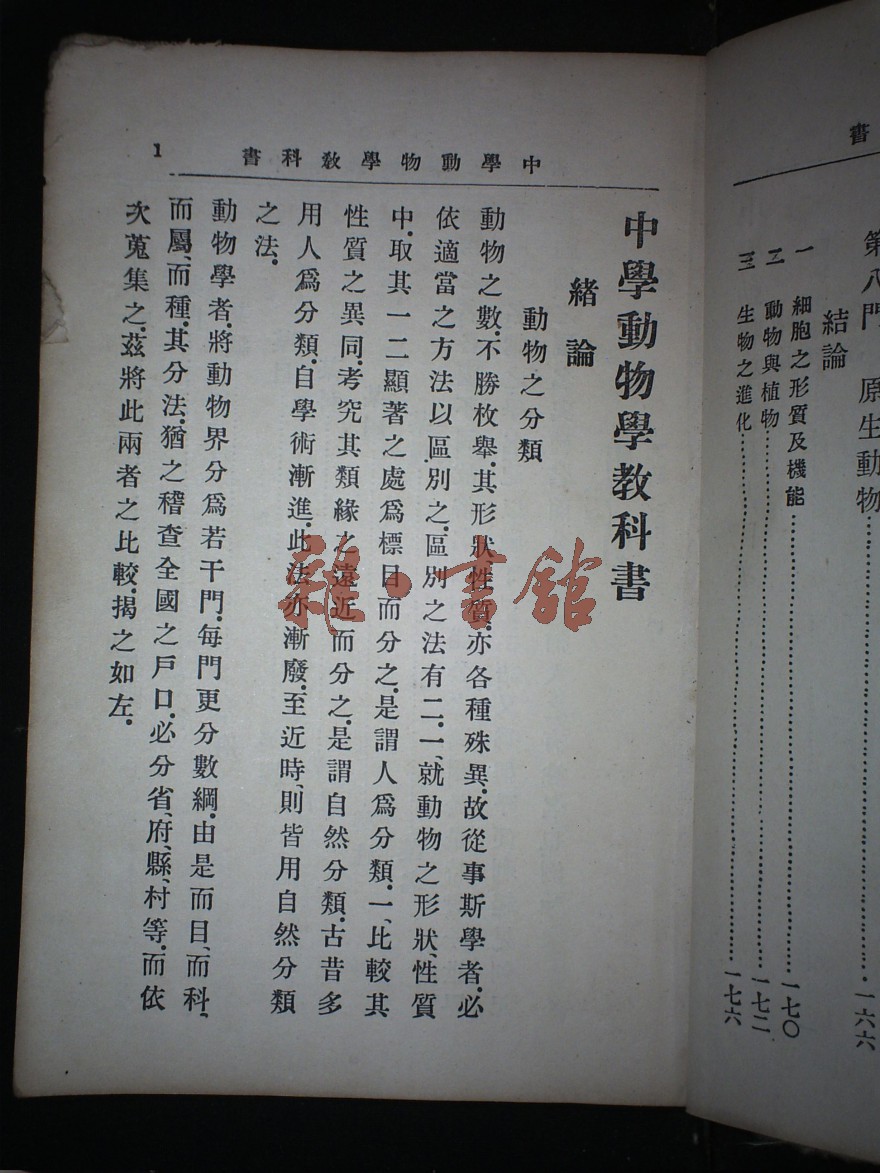 書
第八門 原生動物……一六六
結論
一 細胞之形質及機能……一七〇
二 動物與植物……一七二
三 生物之進化……一七六
中學動物學敎科書
1
中學動物學敎科書
緒論
動物之分類
動物之數.不勝枚舉.其形狀性質.亦各種殊異.故從事斯學者.必
依適當之方法以區別之.區別之法有二.一、就動物之形狀、性質
中.取其一二顯著之處爲標目而分之.是謂人爲分類.一、比較其
性質之異同.考究其類緣之遠近而分之.是謂自然分類.古昔多
用人爲分類.自學術漸進.此法亦漸廢.至近時、則皆用自然分類
之法.
動物學者.將動物界分爲若干門.每門更分數綱.由是而目、而科、
而屬、而種.其分法.猶之稽查全國之戶口.必分省、府、縣、村等.而依
次蒐集之.茲將此兩者之比較.揭之如左.
雜·書館